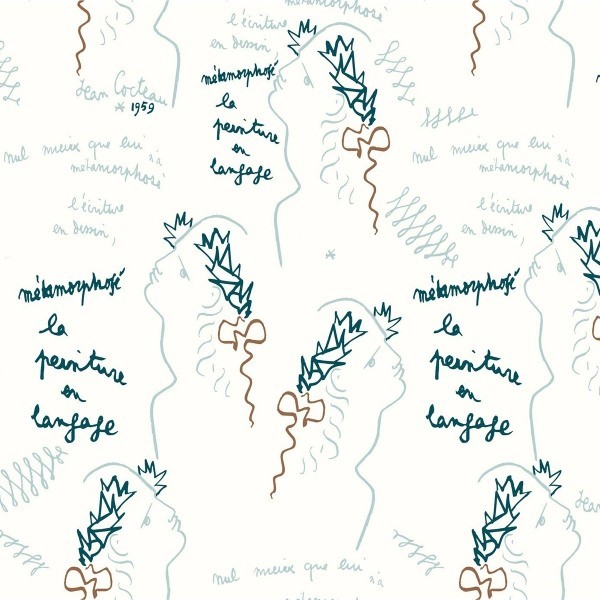 métamorphosé
l'écriture
en dessin,
métamorphosé
la
peinture
en
langage
Jean Cocteau
* 1959
nul mieux que lui n'a
métamorphosé
l'écriture
en dessin,
nul mieux que lui n'a
métamorphosé
l'écriture
en dessin,
métamorphosé
la
peinture
en
langage
métamorphosé
la
peinture
en
langage
Jean
nul mieux que lui n'a